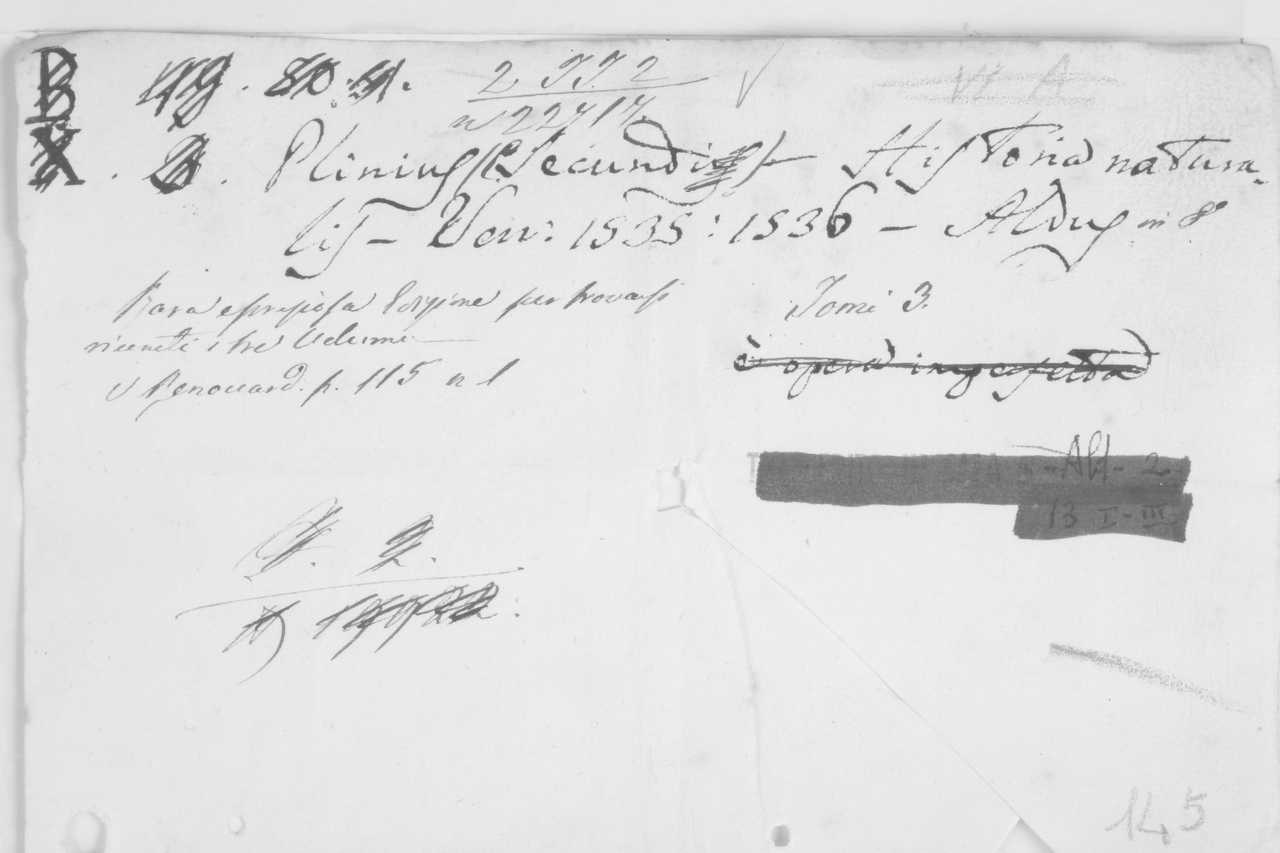 2 II 2
n 22717
Plinius (Secundi) – Historia natura-
lis – Ven: 1535: 1536 – Aldus in 8°
Rara e preziosa Edizione per trovarsi
riuniti i tre Volumi
V Renouard. p. 115 n 1
Tomi 3.
è opera imperfetta
Ald- 2
13 I-III
145